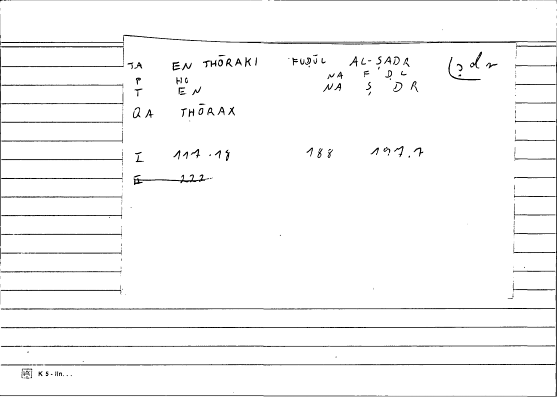 TA EN THŌRAKI FUḌŪL AL-ṢADR ṣdr
P HO NA F Ḍ L
T EN NA Ṣ DR
QA THŌRAX
I 117.18 188 197.7
II 222
K 5 - lin. . .